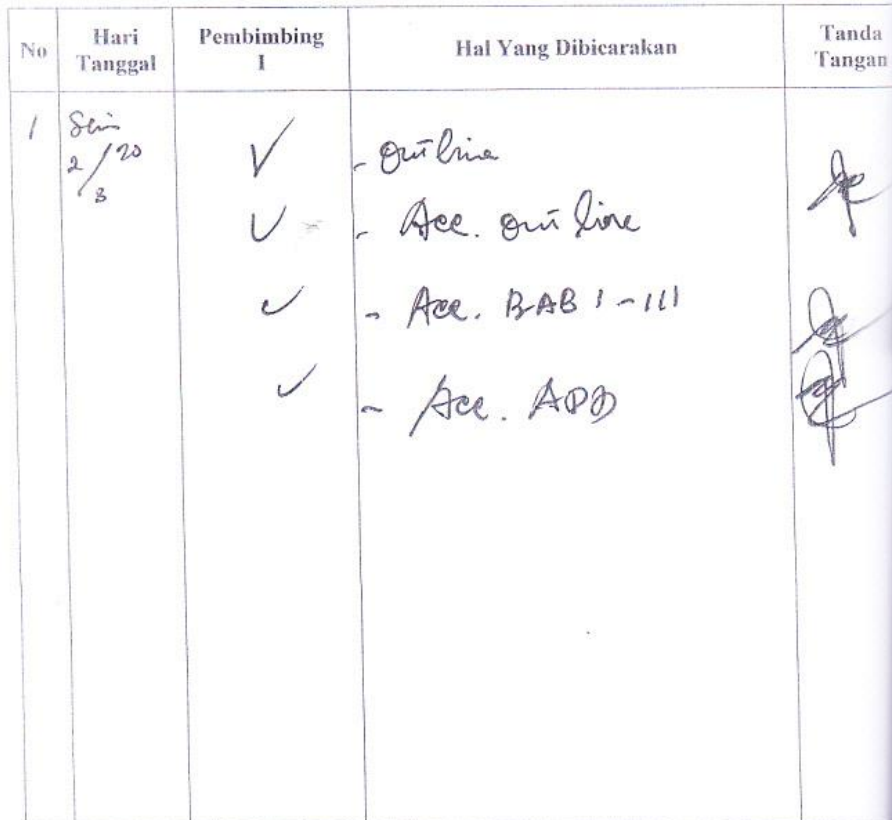 No Hari Tanggal Pembimbing I Hal Yang Dibicarakan Tanda Tangan
1 Senin 2/3 20 - Outline
- Acc. outline
- Acc. BAB I - III
- Acc. APD